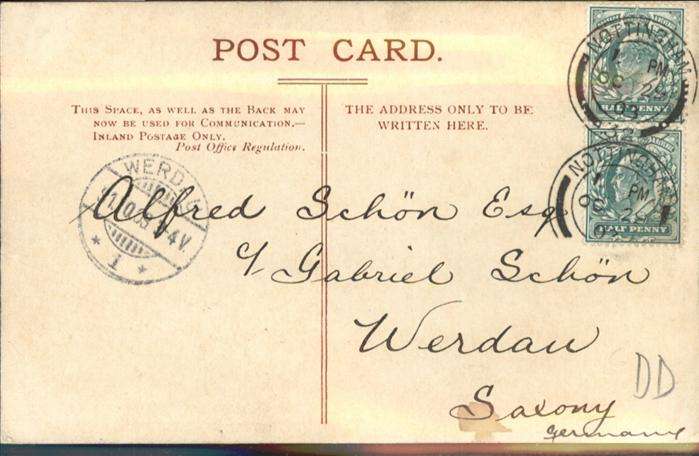 POST CARD.
THIS SPACE, AS WELL AS THE BACK MAY
NOW BE USED FOR COMMUNICATION.—
INLAND POSTAGE ONLY.
Post Office Regulation.
THE ADDRESS ONLY TO BE
WRITTEN HERE.
NOTTINGHAM
PM
OC 29
HALF PENNY
NOTTINGHAM
PM
OC 29
HALF PENNY
WERDAU
4V
* 1 *
Alfred Schön Esq
c/ Gabriel Schön
Werdau
Saxony
Germany
DD